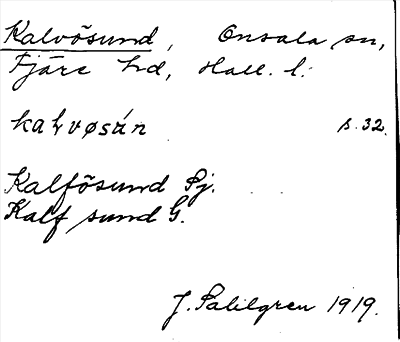 Kalvösund, Onsala sn,
Fjäre hd, Hall. l.
kaƚvøsún s. 32.
Kalfösund Sj.
Kalf sund G.
J. Sahlgren 1919.